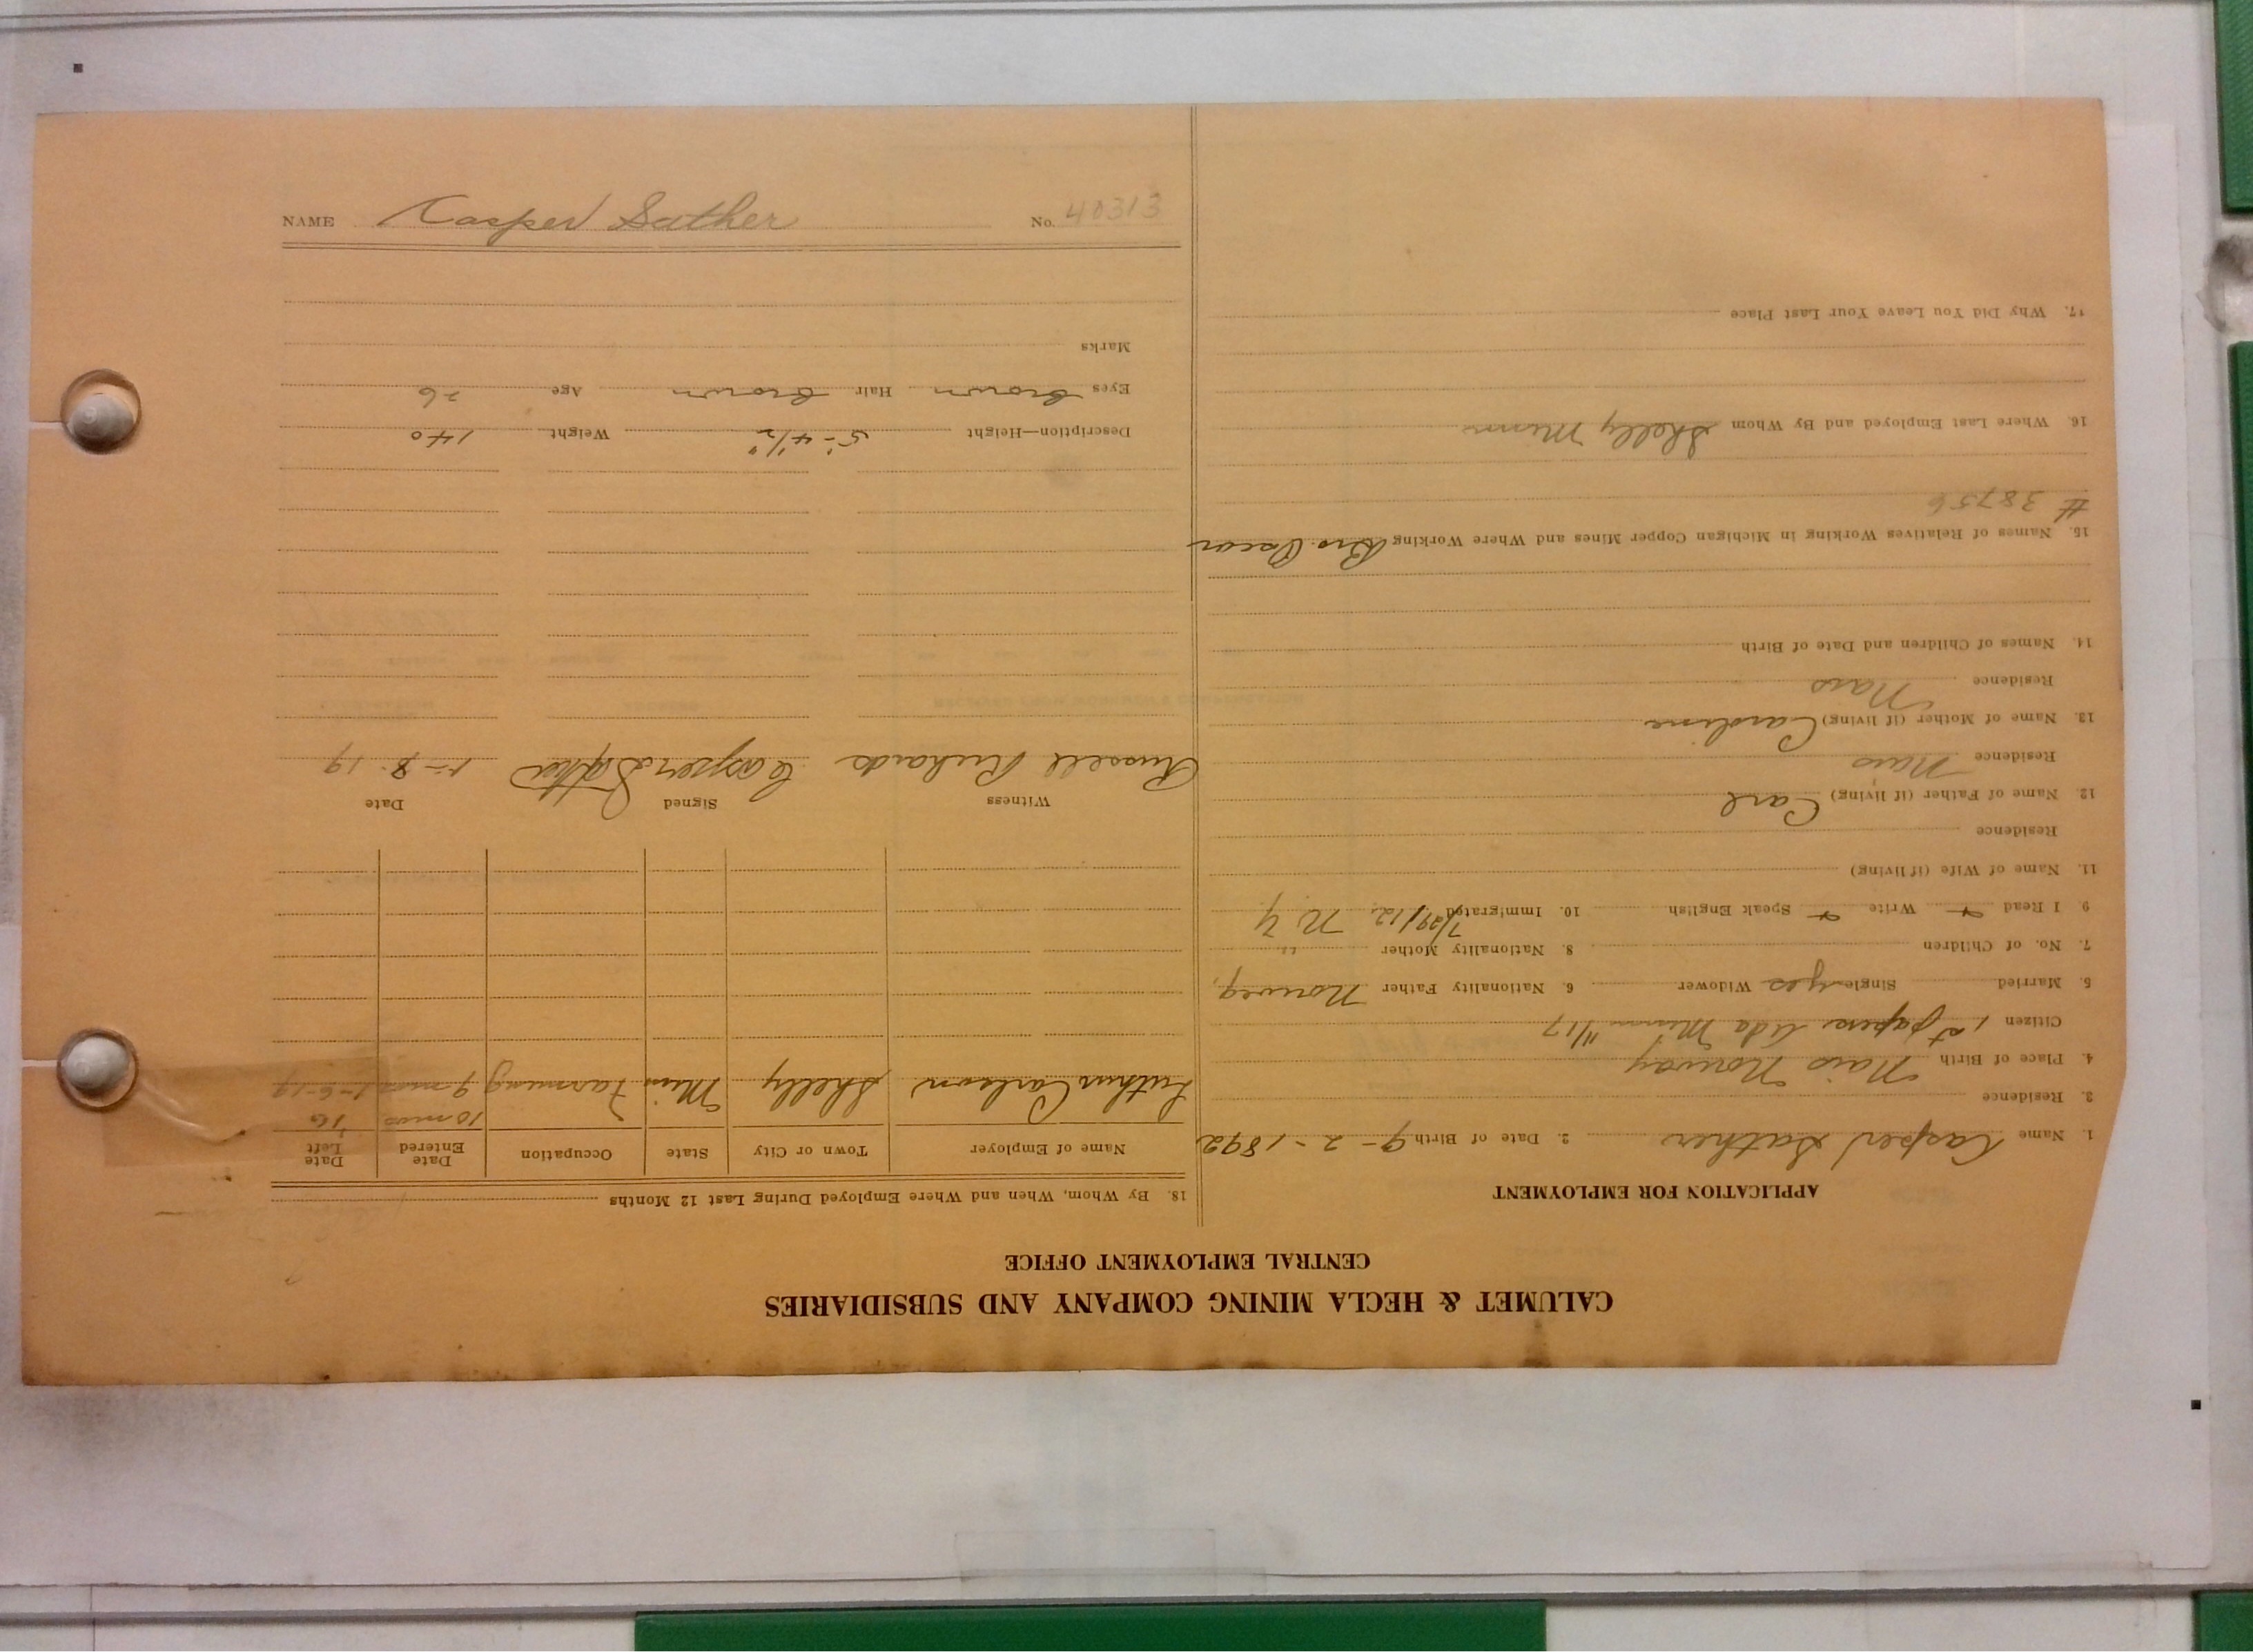 CALUMET & HECLA MINING COMPANY AND SUBSIDIARIES
CENTRAL EMPLOYMENT OFFICE
APPLICATION FOR EMPLOYMENT
1. Name Casper Sather 2. Date of Birth 9-2-1892
3. Residence
4. Place of Birth Nais Norway
Citizen 1st papers Ada Minn 11/17
5. Married Single yes Widower 6. Nationality Father Norweg.
7. No. of Children 8. Nationality Mother "
9. I Read + Write + Speak English 10. Immigrated 7/29/12 N.Y.
11. Name of Wife (if living)
Residence
12. Name of Father (if living) Carl
Residence Nais
13. Name of Mother (if living) Caroline
Residence Nais
14. Names of Children and Date of Birth
15. Names of Relatives Working in Michigan Copper Mines and Where Working Bro. Oscar
# 38756
16. Where Last Employed and By Whom Shelly Minn
17. Why Did You Leave Your Last Place
18. By Whom, When and Where Employed During Last 12 Months
Name of Employer Town or City State Occupation Date Entered Date Left
10 mos
Luthus Carlson Shelly Minn Farming 9 mos 1-6-19
Witness Signed Date
Russell Richards Casper Sather 1-8-19
Description—Height 5'-4 1/2" Weight 140
Eyes Brown Hair Brown Age 26
Marks
NAME Casper Sather No. 40313